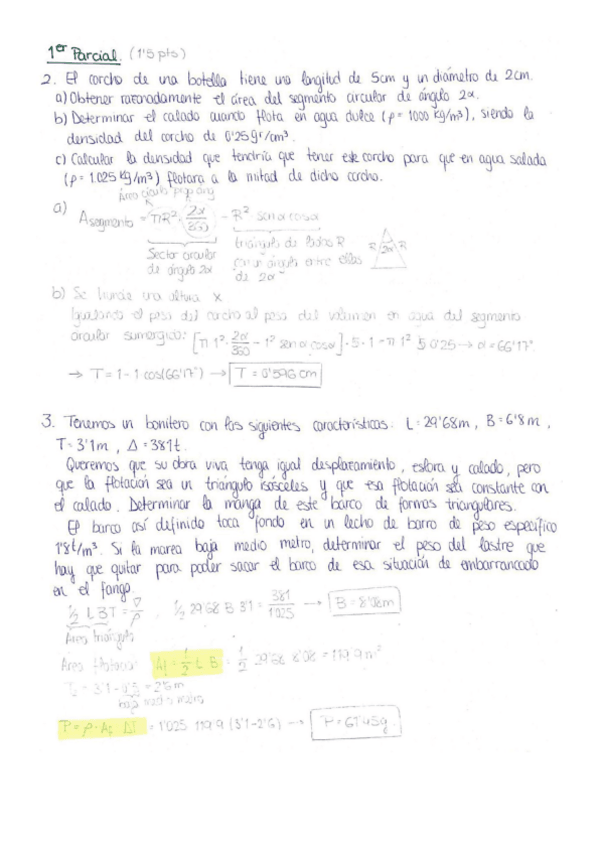 1er Parcial. (1'5 pts)
2. El corcho de una botella tiene una longitud de 5cm y un diámetro de 2cm.
a) Obtener razonadamente el área del segmento circular de ángulo 2α.
b) Determinar el calado cuando flota en agua dulce (ρ = 1000 kg/m³), siendo la
densidad del corcho de 0'25gr/cm³.
c) Calcular la densidad que tendría que tener este corcho para que en agua salada
(ρ = 1.025 kg/m³) flotara a la mitad de dicho corcho.
Área círculo
a) Asegmento = πR² · 2α/360 - R² senα cosα
Sector circular de ángulo 2α
triángulo de lados R con un ángulo entre ellos de 2α
R 2α R
b) Se hunde una altura x
Igualando el peso del corcho al peso del volumen en agua del segmento
circular sumergido: [π 1² · 2α/360 - 1² senα cosα] · 5 · 1 = π 1² 5 0'25 → α = 66'17°
→ T = 1 - 1 cos(66'17°) → T = 0'596 cm
3. Tenemos un bonitero con las siguientes características: L = 29'68m, B = 6'8m,
T = 3'1m, Δ = 381t.
Queremos que su obra viva tenga igual desplazamiento, eslora y calado, pero
que la flotación sea un triángulo isósceles y que esa flotación sea constante con
el calado. Determinar la manga de este barco de formas triangulares.
El barco así definido toca fondo en un lecho de barro de peso específico
1'8t/m³. Si la marea baja medio metro, determinar el peso del lastre que
hay que quitar para poder sacar el barco de esa situación de embarrancado
en el fango.
½ L B T = ∇/ρ , ½ 29'68 B 3'1 = 381/1'025 → B = 8'08m
Área triángulo
Área flotación: Af = ½ L B = ½ 29'68 8'08 = 119'9 m²
T₂ = 3'1 - 0'5 = 2'6 m
baja medio metro
P = ρ · Af ΔT = 1'025 119'9 (3'1 - 2'6) → P = 61'45